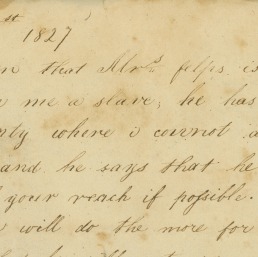 st
1827
that Mrs. felps is
me a slave, he has
where i cannot
and he says that he
your reach if possible.
will do the more for